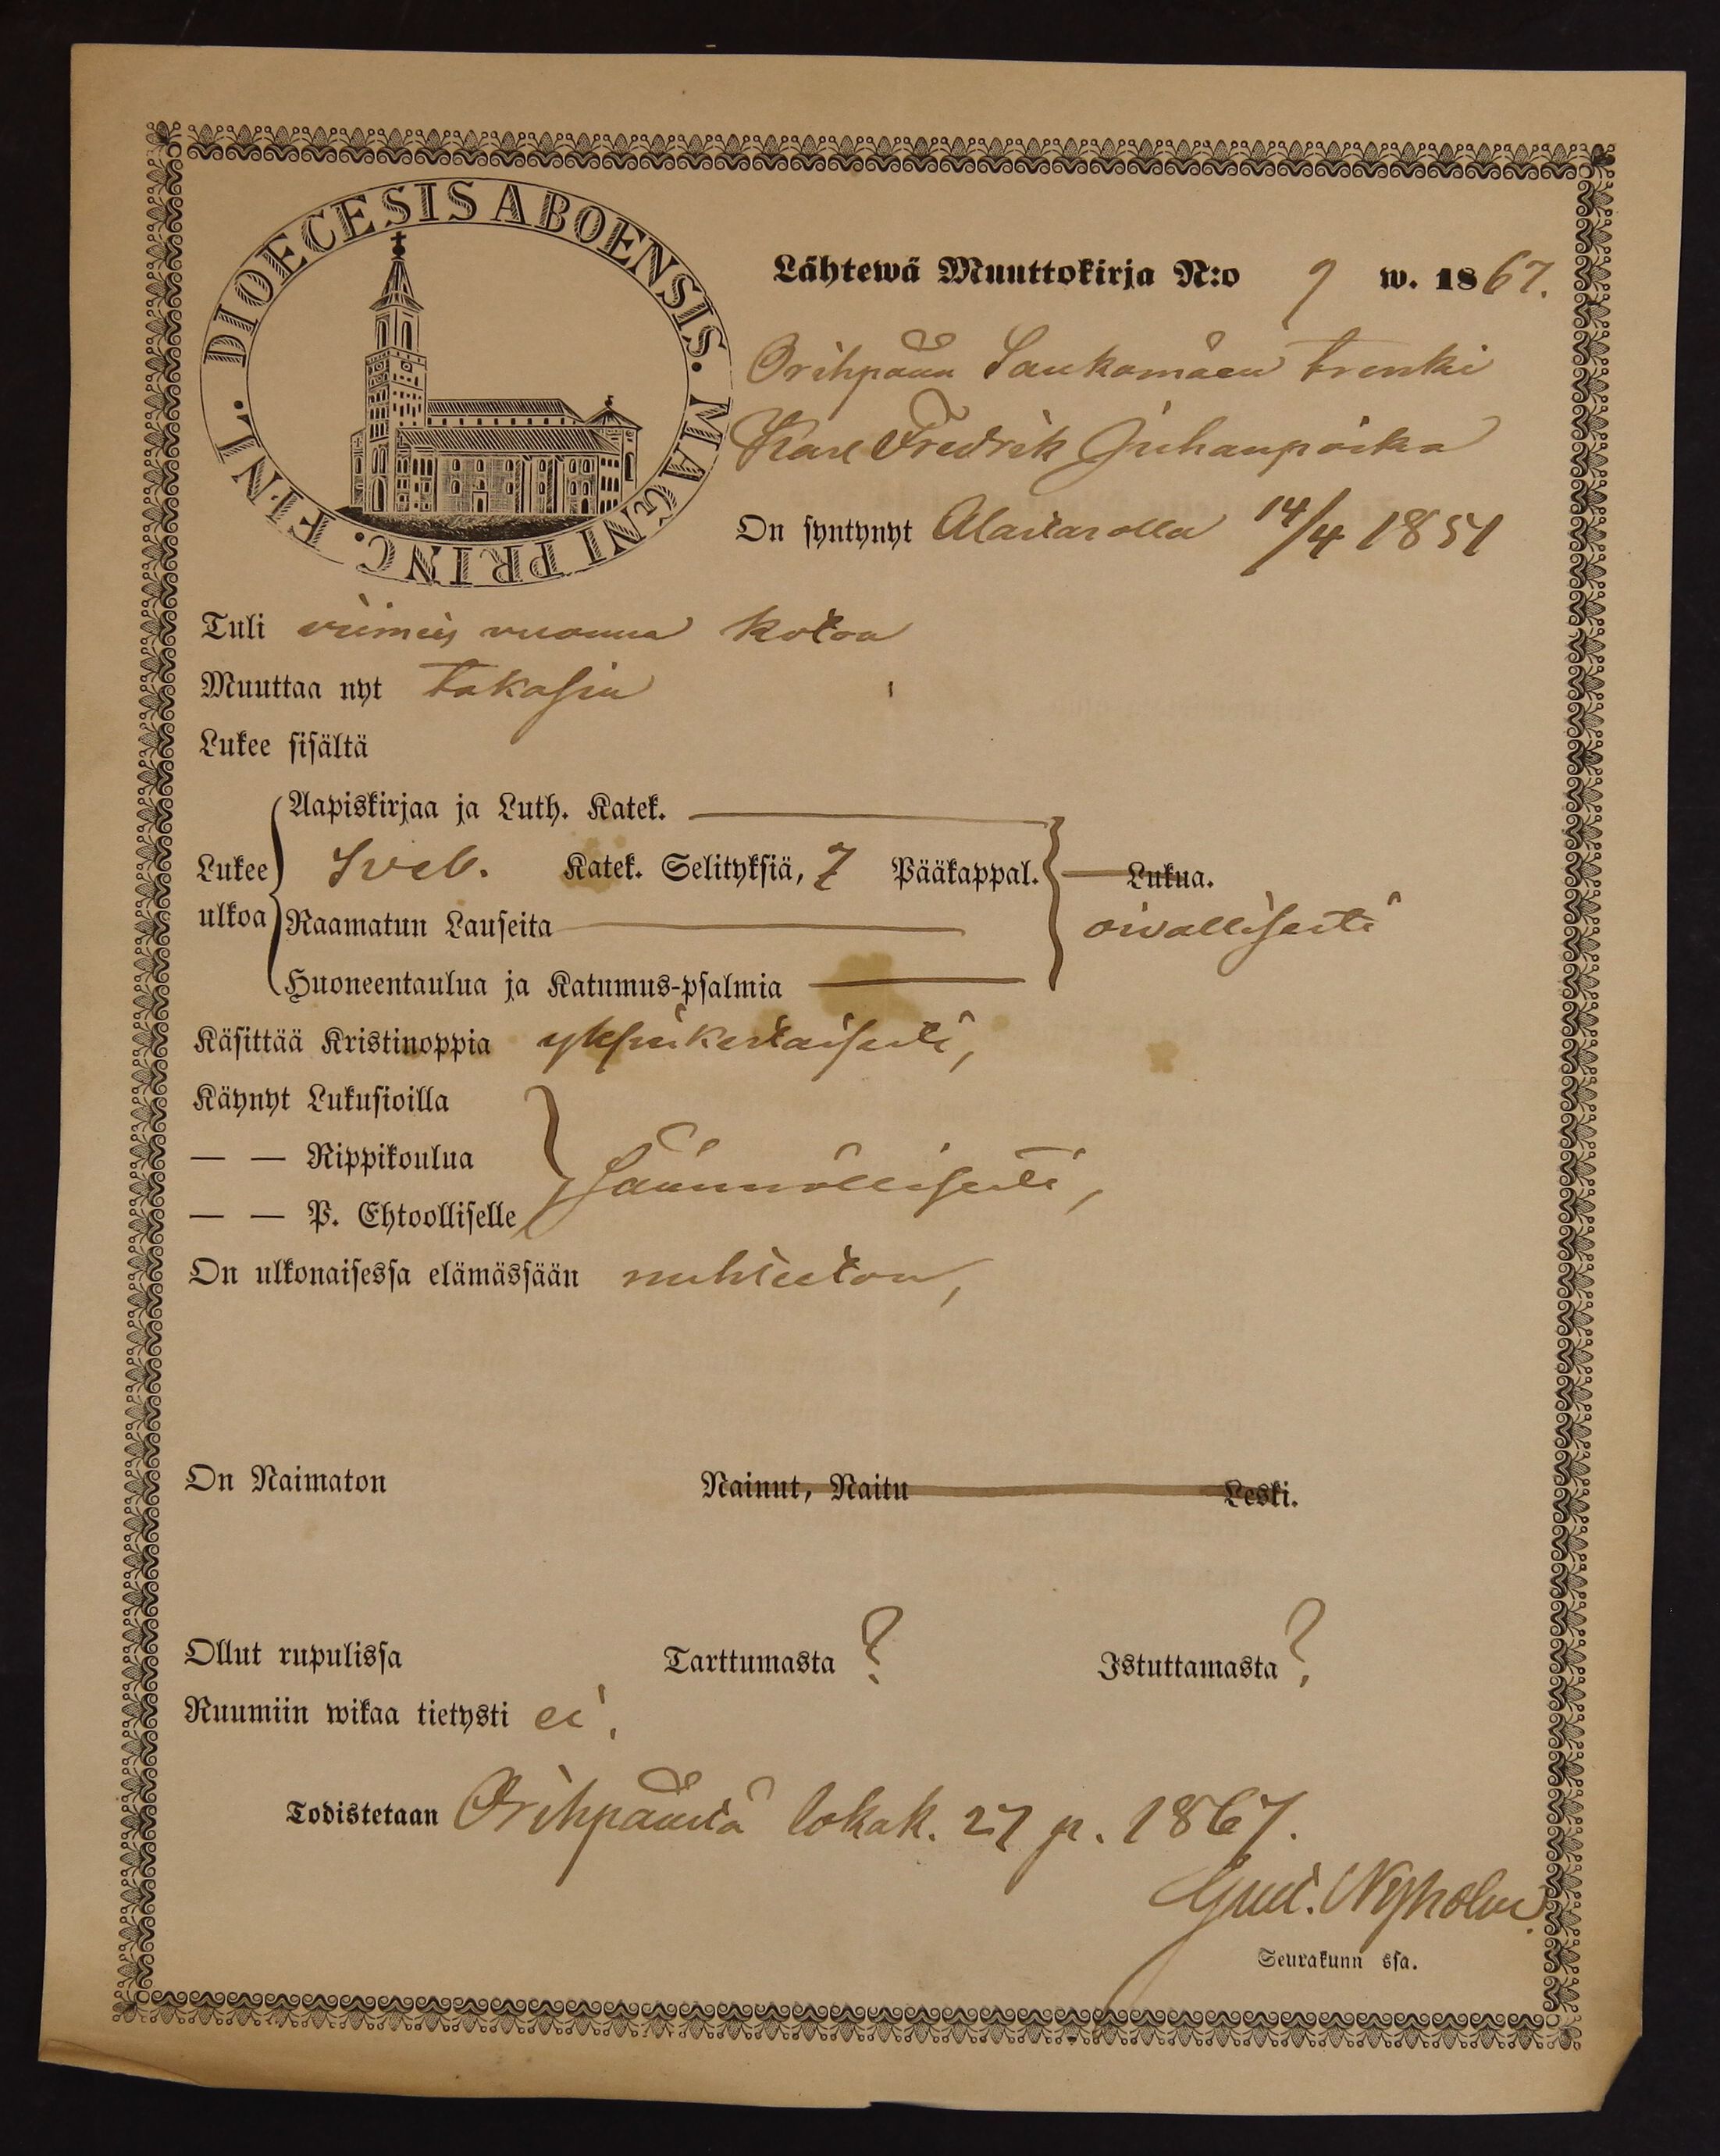 DIOECESIS ABOENSIS. MAGNI PRINC. FINL.
Lähtewä Muuttokirja N:o 9 w. 1867.
Orihpään Saukomäen trenki
Karl Fredrik Juhanpoika
On syntynyt Alastarolla 14/4 1851
Tuli viimeis vuonna kotoa
Muuttaa nyt takasin
Lukee sisältä
Aapiskirjaa ja Luth. Katek.
Lukee Sveb. Katek. Selityksiä, 7 Pääkappal. Lukua.
ulkoa Raamatun Lauseita oivallisesti
Huoneentaulua ja Katumus-psalmia
Käsittää Kristinoppia yksinkertaisesti,
Käynyt Lukusioilla
— — Rippikoulua säännöllisesti,
— — P. Ehtoolliselle
On ulkonaisessa elämässään nuhteeton,
On Naimaton Nainut, Naitu Leski.
Ollut rupulissa Tarttumasta ? Istuttamasta ?
Ruumiin wikaa tietysti ei.
Todistetaan Orihpäästä lokak. 27 p. 1867.
Gust. Nyholm.
Seurakunn ssa.